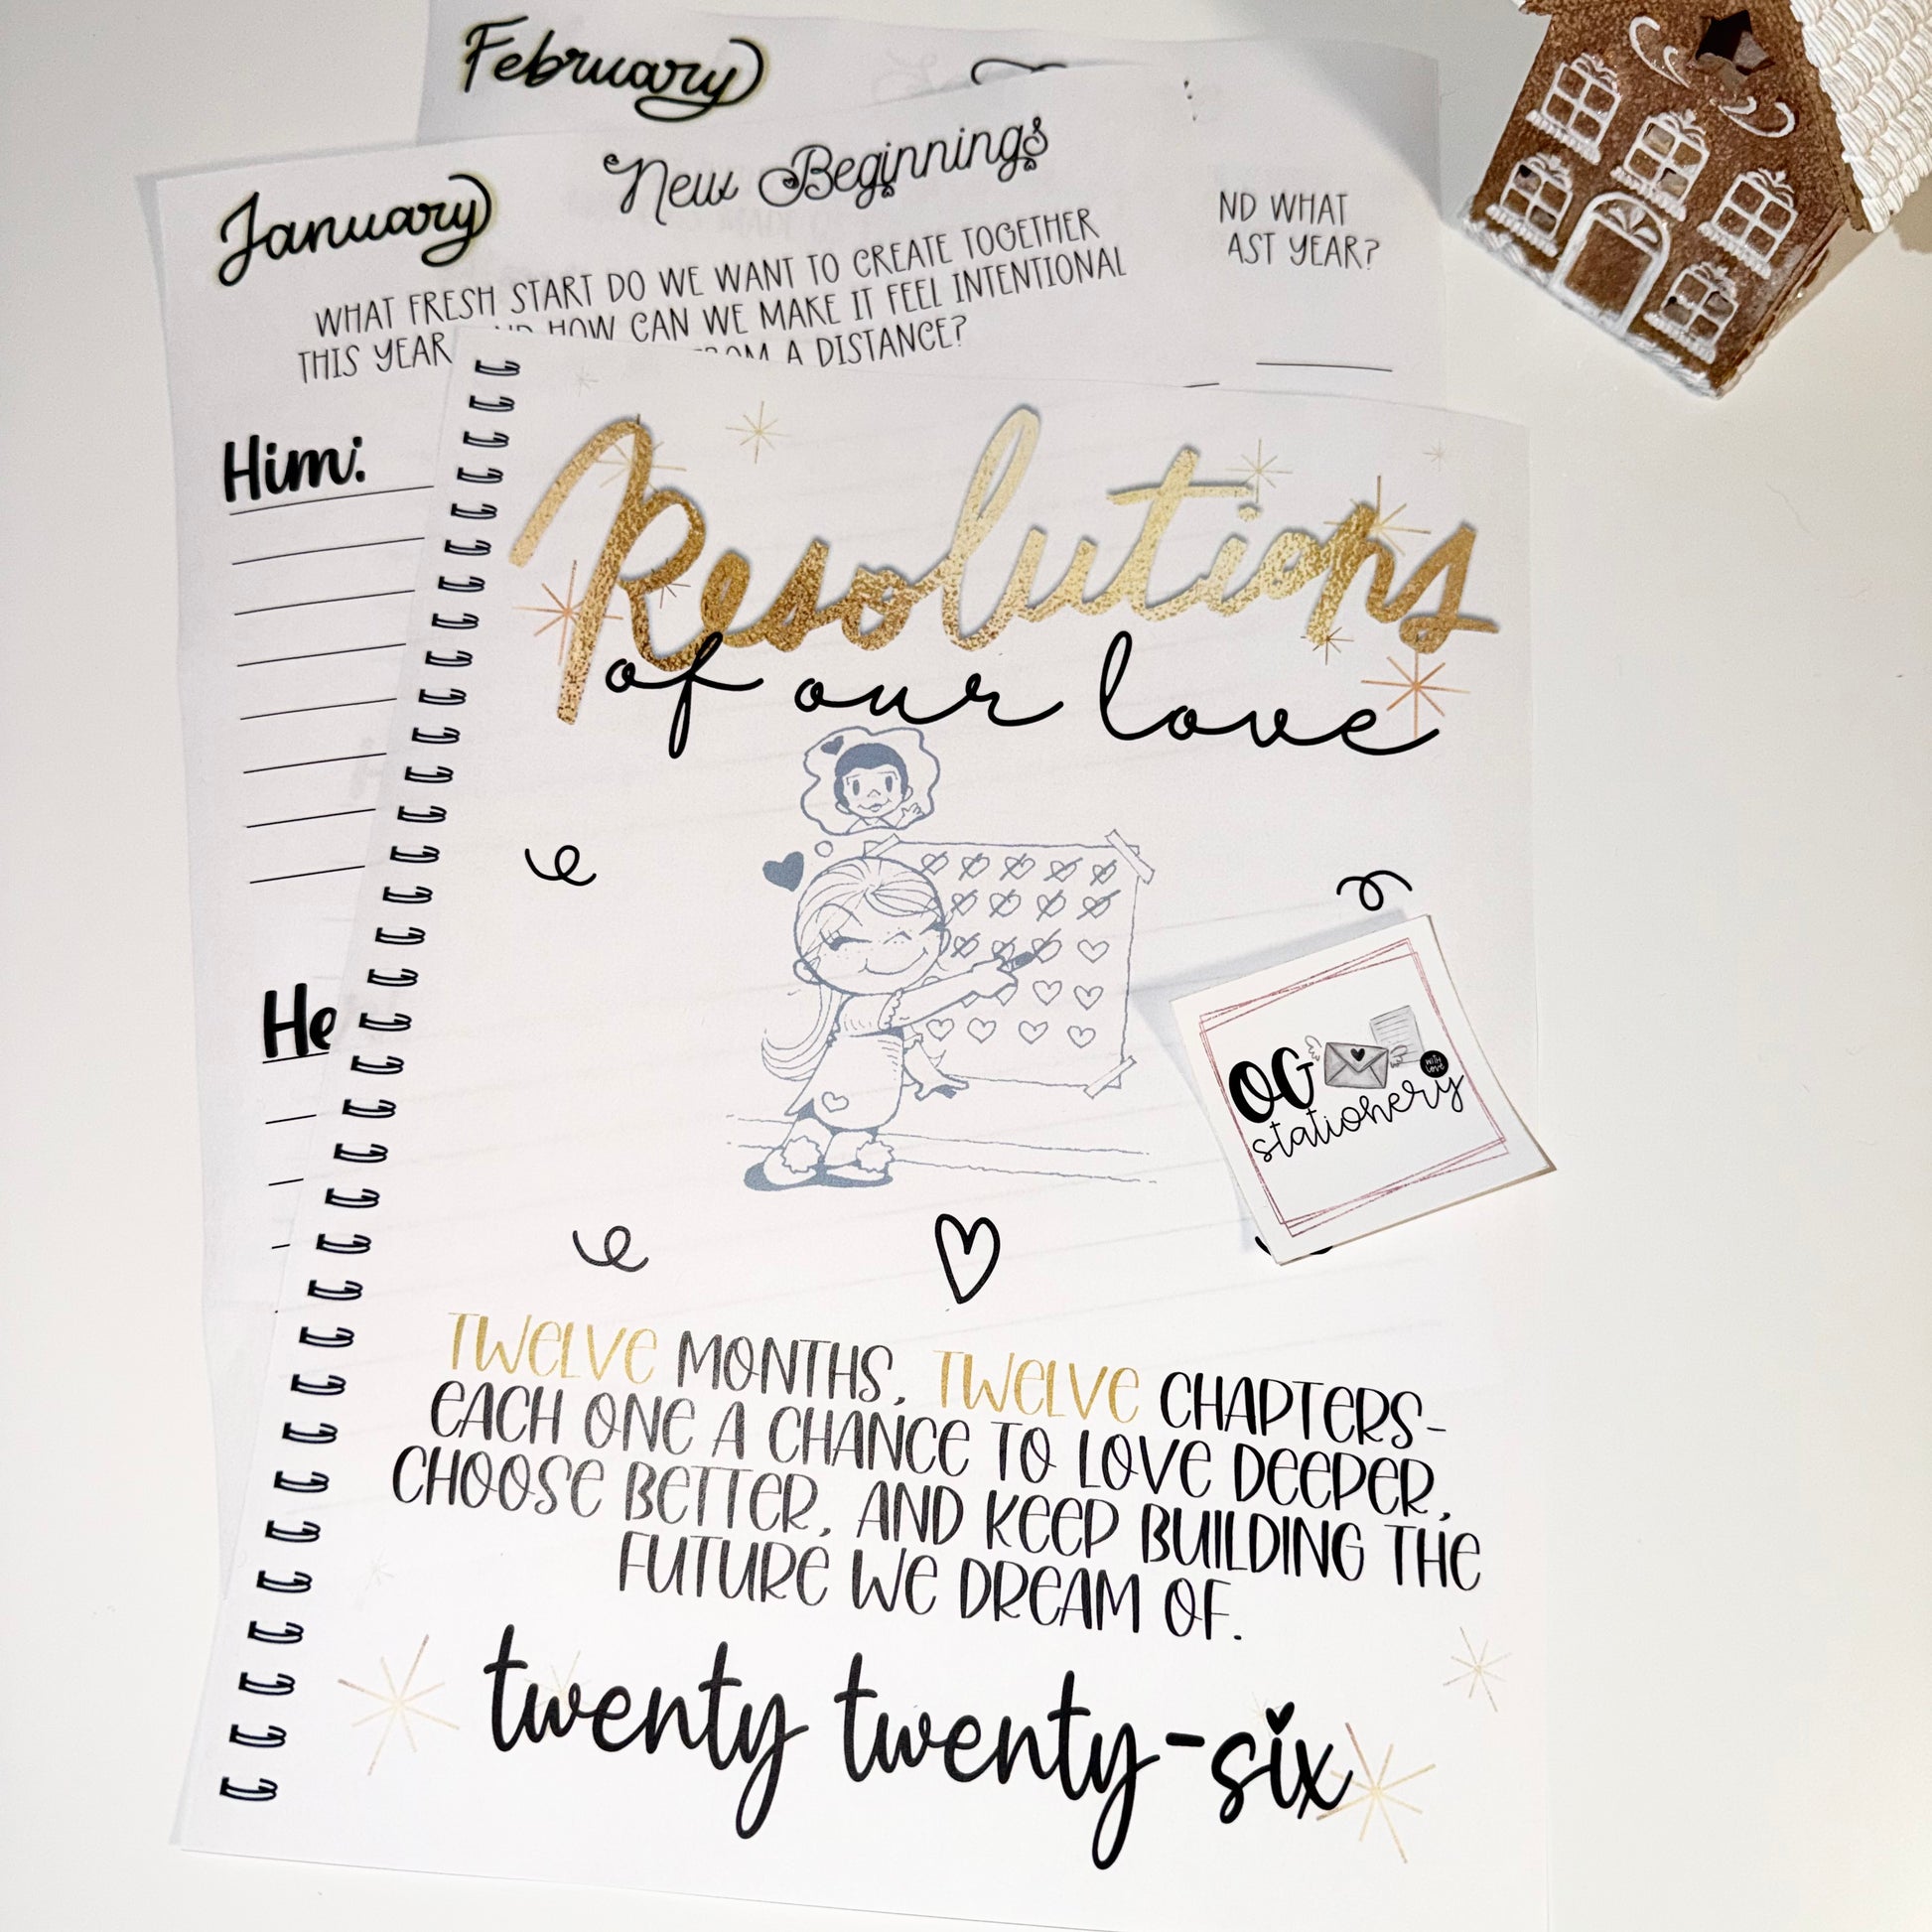 February
January
New Beginnings
ND WHAT
AST YEAR?
WHAT FRESH START DO WE WANT TO CREATE TOGETHER
THIS YEAR HOW CAN WE MAKE IT FEEL INTENTIONAL
A DISTANCE?
Him:
He
Resolutions
of our love
OG
with love
stationery
TWELVE MONTHS, TWELVE CHAPTERS-
EACH ONE A CHANCE TO LOVE DEEPER,
CHOOSE BETTER, AND KEEP BUILDING THE
FUTURE WE DREAM OF.
twenty twenty-six